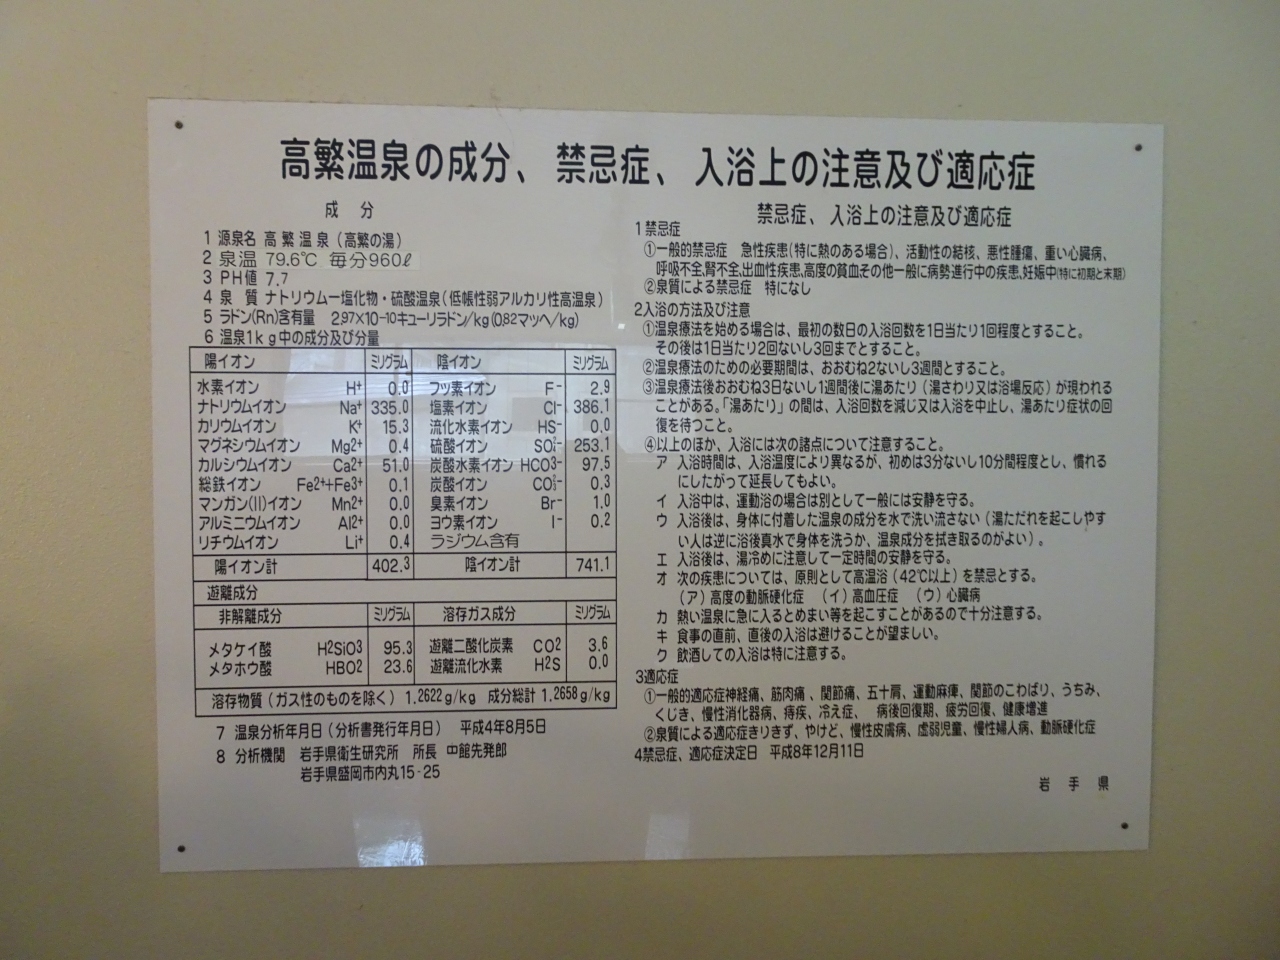 高繁温泉の成分、禁忌症、入浴上の注意及び適応症
成分
1 源泉名 高繁温泉(高繁の湯)
2 泉温 79.6℃ 毎分960ℓ
3 PH値 7.7
4 泉質 ナトリウムー塩化物・硫酸温泉(低帳性弱アルカリ性高温泉)
5 ラドン(Rn)含有量 2.97×10-10キューリラドン/kg(0.82マッヘ/kg)
6 温泉1kg中の成分及び分量
陽イオン ミリグラム 陰イオン ミリグラム
水素イオン H+ 0.0 フッ素イオン F- 2.9
ナトリウムイオン Na+ 335.0 塩素イオン Cl- 386.1
カリウムイオン K+ 15.3 流化水素イオン HS- 0.0
マグネシウムイオン Mg2+ 0.4 硫酸イオン SO4 2- 253.1
カルシウムイオン Ca2+ 51.0 炭酸水素イオン HCO3- 97.5
総鉄イオン Fe2++Fe3+ 0.1 炭酸イオン CO3 2- 0.3
マンガン(II)イオン Mn2+ 0.0 臭素イオン Br- 1.0
アルミニウムイオン Al2+ 0.0 ヨウ素イオン I- 0.2
リチウムイオン Li+ 0.4 ラジウム含有
陽イオン計 402.3 陰イオン計 741.1
遊離成分
非解離成分 ミリグラム 溶存ガス成分 ミリグラム
メタケイ酸 H2SiO3 95.3 遊離二酸化炭素 CO2 3.6
メタホウ酸 HBO2 23.6 遊離流化水素 H2S 0.0
溶存物質(ガス性のものを除く)1.2622g/kg 成分総計1.2658g/kg
7 温泉分析年月日(分析書発行年月日) 平成4年8月5日
8 分析機関 岩手県衛生研究所 所長 中館先発郎
岩手県盛岡市内丸15-25
禁忌症、入浴上の注意及び適応症
1禁忌症
①一般的禁忌症 急性疾患(特に熱のある場合)、活動性の結核、悪性腫瘍、重い心臓病、
呼吸不全,腎不全,出血性疾患,高度の貧血その他一般に病勢進行中の疾患,妊娠中(特に初期と末期)
②泉質による禁忌症 特になし
2入浴の方法及び注意
①温泉療法を始める場合は、最初の数日の入浴回数を1日当たり1回程度とすること。
その後は1日当たり2回ないし3回までとすること。
②温泉療法のための必要期間は、おおむね2ないし3週間とすること。
③温泉療法後おおむね3日ないし1週間後に湯あたり(湯さわり又は浴場反応)が現われる
ことがある。「湯あたり」の間は、入浴回数を減じ又は入浴を中止し、湯あたり症状の回
復を待つこと。
④以上のほか、入浴には次の諸点について注意すること。
ア 入浴時間は、入浴温度により異なるが、初めは3分ないし10分間程度とし、慣れる
にしたがって延長してもよい。
イ 入浴中は、運動浴の場合は別として一般には安静を守る。
ウ 入浴後は、身体に付着した温泉の成分を水で洗い流さない(湯ただれを起こしやす
い人は逆に浴後真水で身体を洗うか、温泉成分を拭き取るのがよい)。
エ 入浴後は、湯冷めに注意して一定時間の安静を守る。
オ 次の疾患については、原則として高温浴(42℃以上)を禁忌とする。
(ア)高度の動脈硬化症 (イ)高血圧症 (ウ)心臓病
カ 熱い温泉に急に入るとめまい等を起こすことがあるので十分注意する。
キ 食事の直前、直後の入浴は避けることが望ましい。
ク 飲酒しての入浴は特に注意する。
3適応症
①一般的適応症神経痛、筋肉痛、関節痛、五十肩、運動麻痺、関節のこわばり、うちみ、
くじき、慢性消化器病、痔疾、冷え症、 病後回復期、疲労回復、健康増進
②泉質による適応症きりきず、やけど、慢性皮膚病、虚弱児童、慢性婦人病、動脈硬化症
4禁忌症、適応症決定日 平成8年12月11日
岩手県